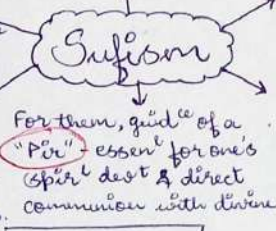 Sufism
For them, guidce of a
"Pir" - essenl for one's
spirl devt & direct
communion with divine